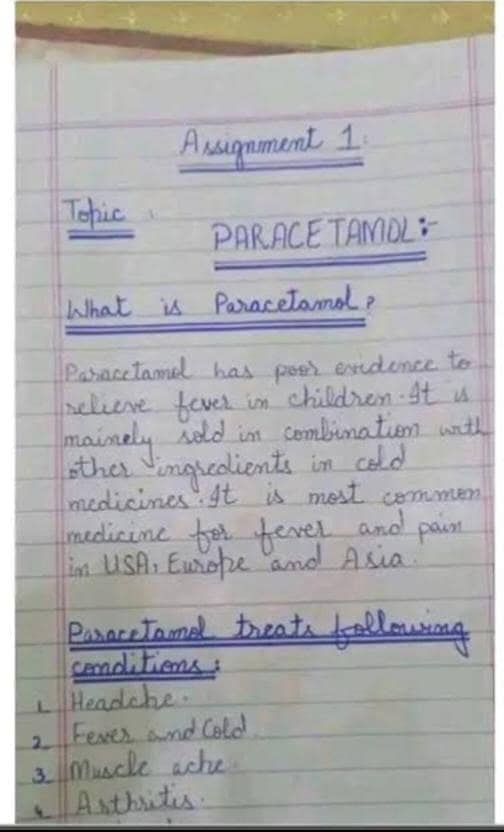 Assignment 1.
Topic :
PARACETAMOL:-
What is Paracetamol?
Paracetamol has poor evidence to
relieve fever in children. It is
mainely sold in combination with
other ingredients in cold
medicines. It is most common
medicine for fever and pain
in USA, Europe and Asia.
Paracetamol treats following
conditions:
1. Headche.
2. Fever and Cold.
3. Muscle ache.
Arthritis.